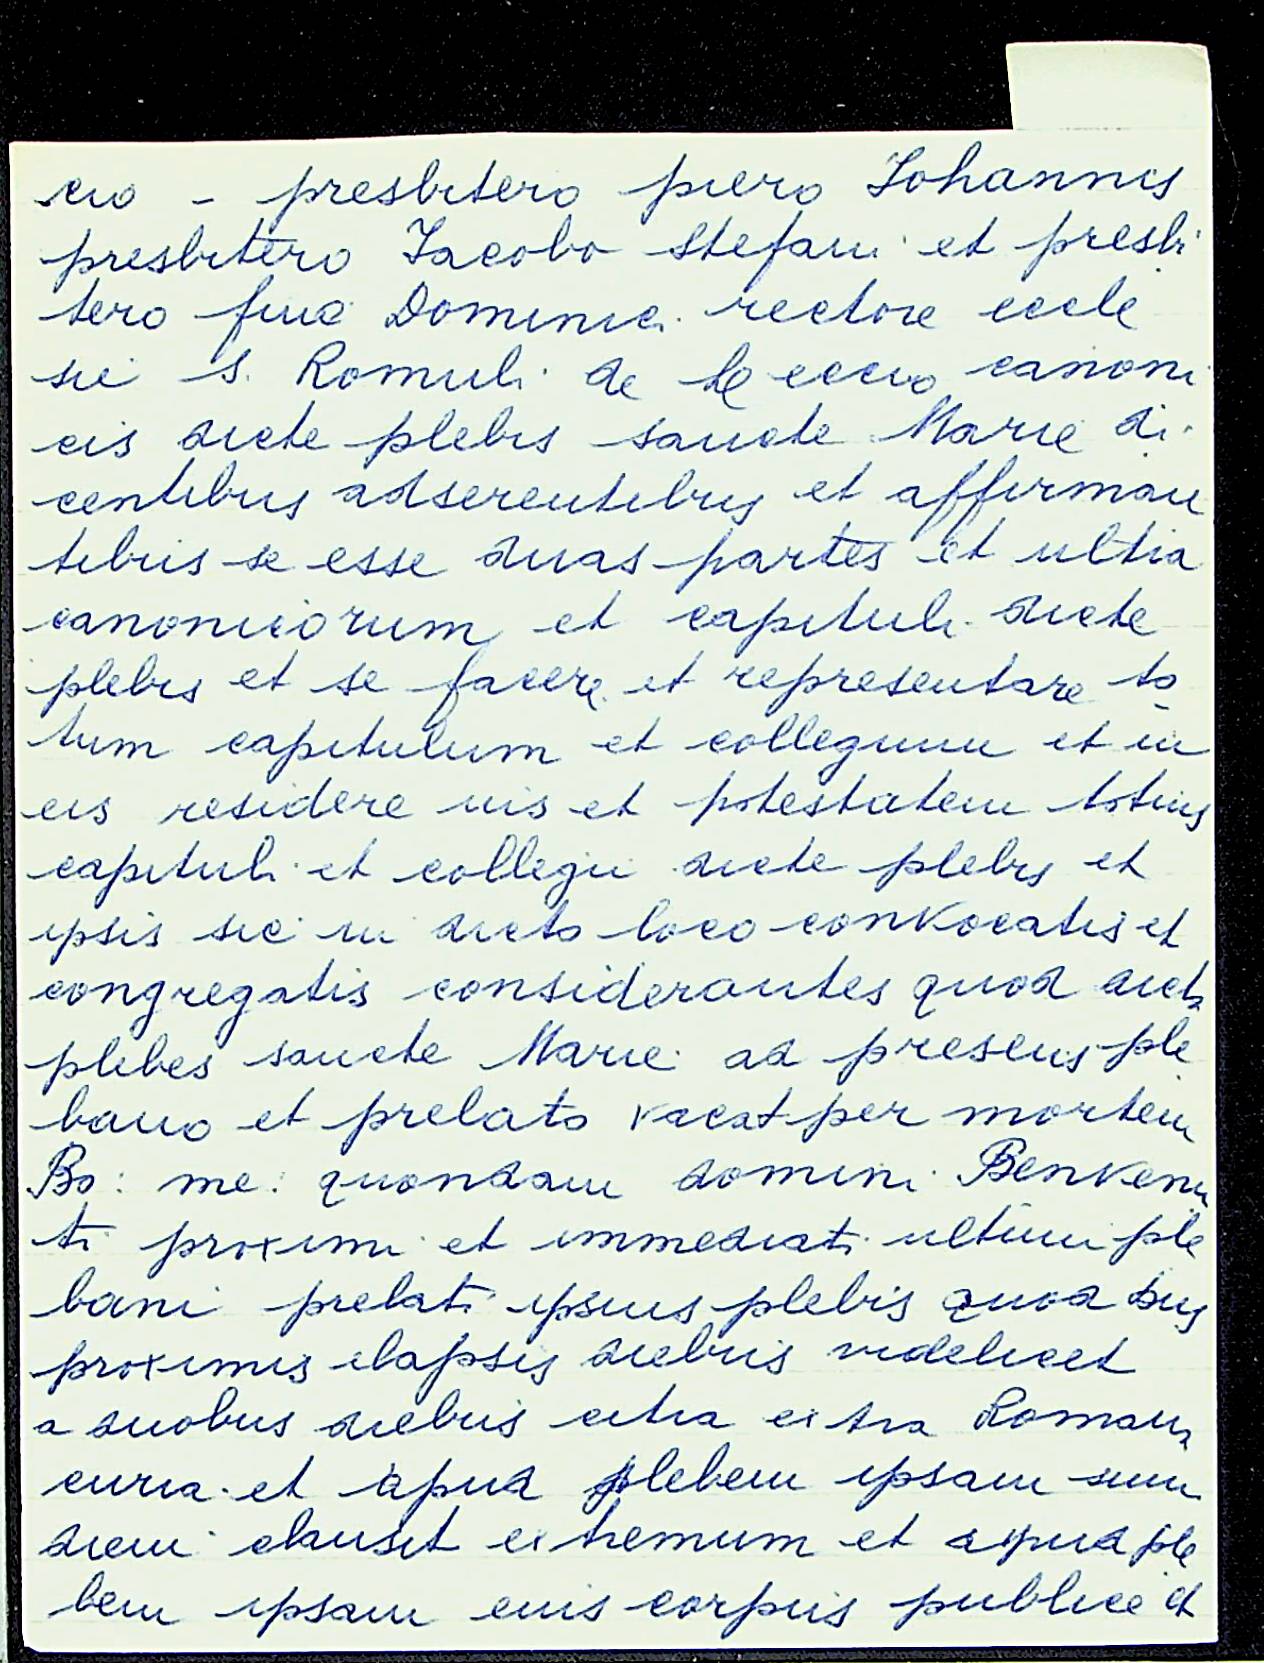 cio - presbitero piero Johannis
presbitero Jacobo Stefani et presbi
tero Dominici rectore eccle
sie S. Romuli de canoni
cis dicte plebis sancte Marie di
centibus adserentibus et affirman
tibus se esse duas partes et ultra
canonicorum et capituli dicte
plebis et se facere et representare to
tum capitulum et collegium et in
eis residere ius et potestatem totius
capituli et collegii dicte plebis et
ipsis sic in dicto loco convocatis et
congregatis considerantes quod dicta
plebes sancte Marie ad presens ple
bano et prelato vacat per mortem
Bo: me: quondam domini Benvenu
ti proximi et immediati ultimi ple
bani prelati ipsius plebis quod
proximis elapsis diebus videlicet
a duobus diebus citra extra Romana
curia et apud plebem ipsam suum
diem clausit extremum et apud ple
bem ipsam eius corpus publice et